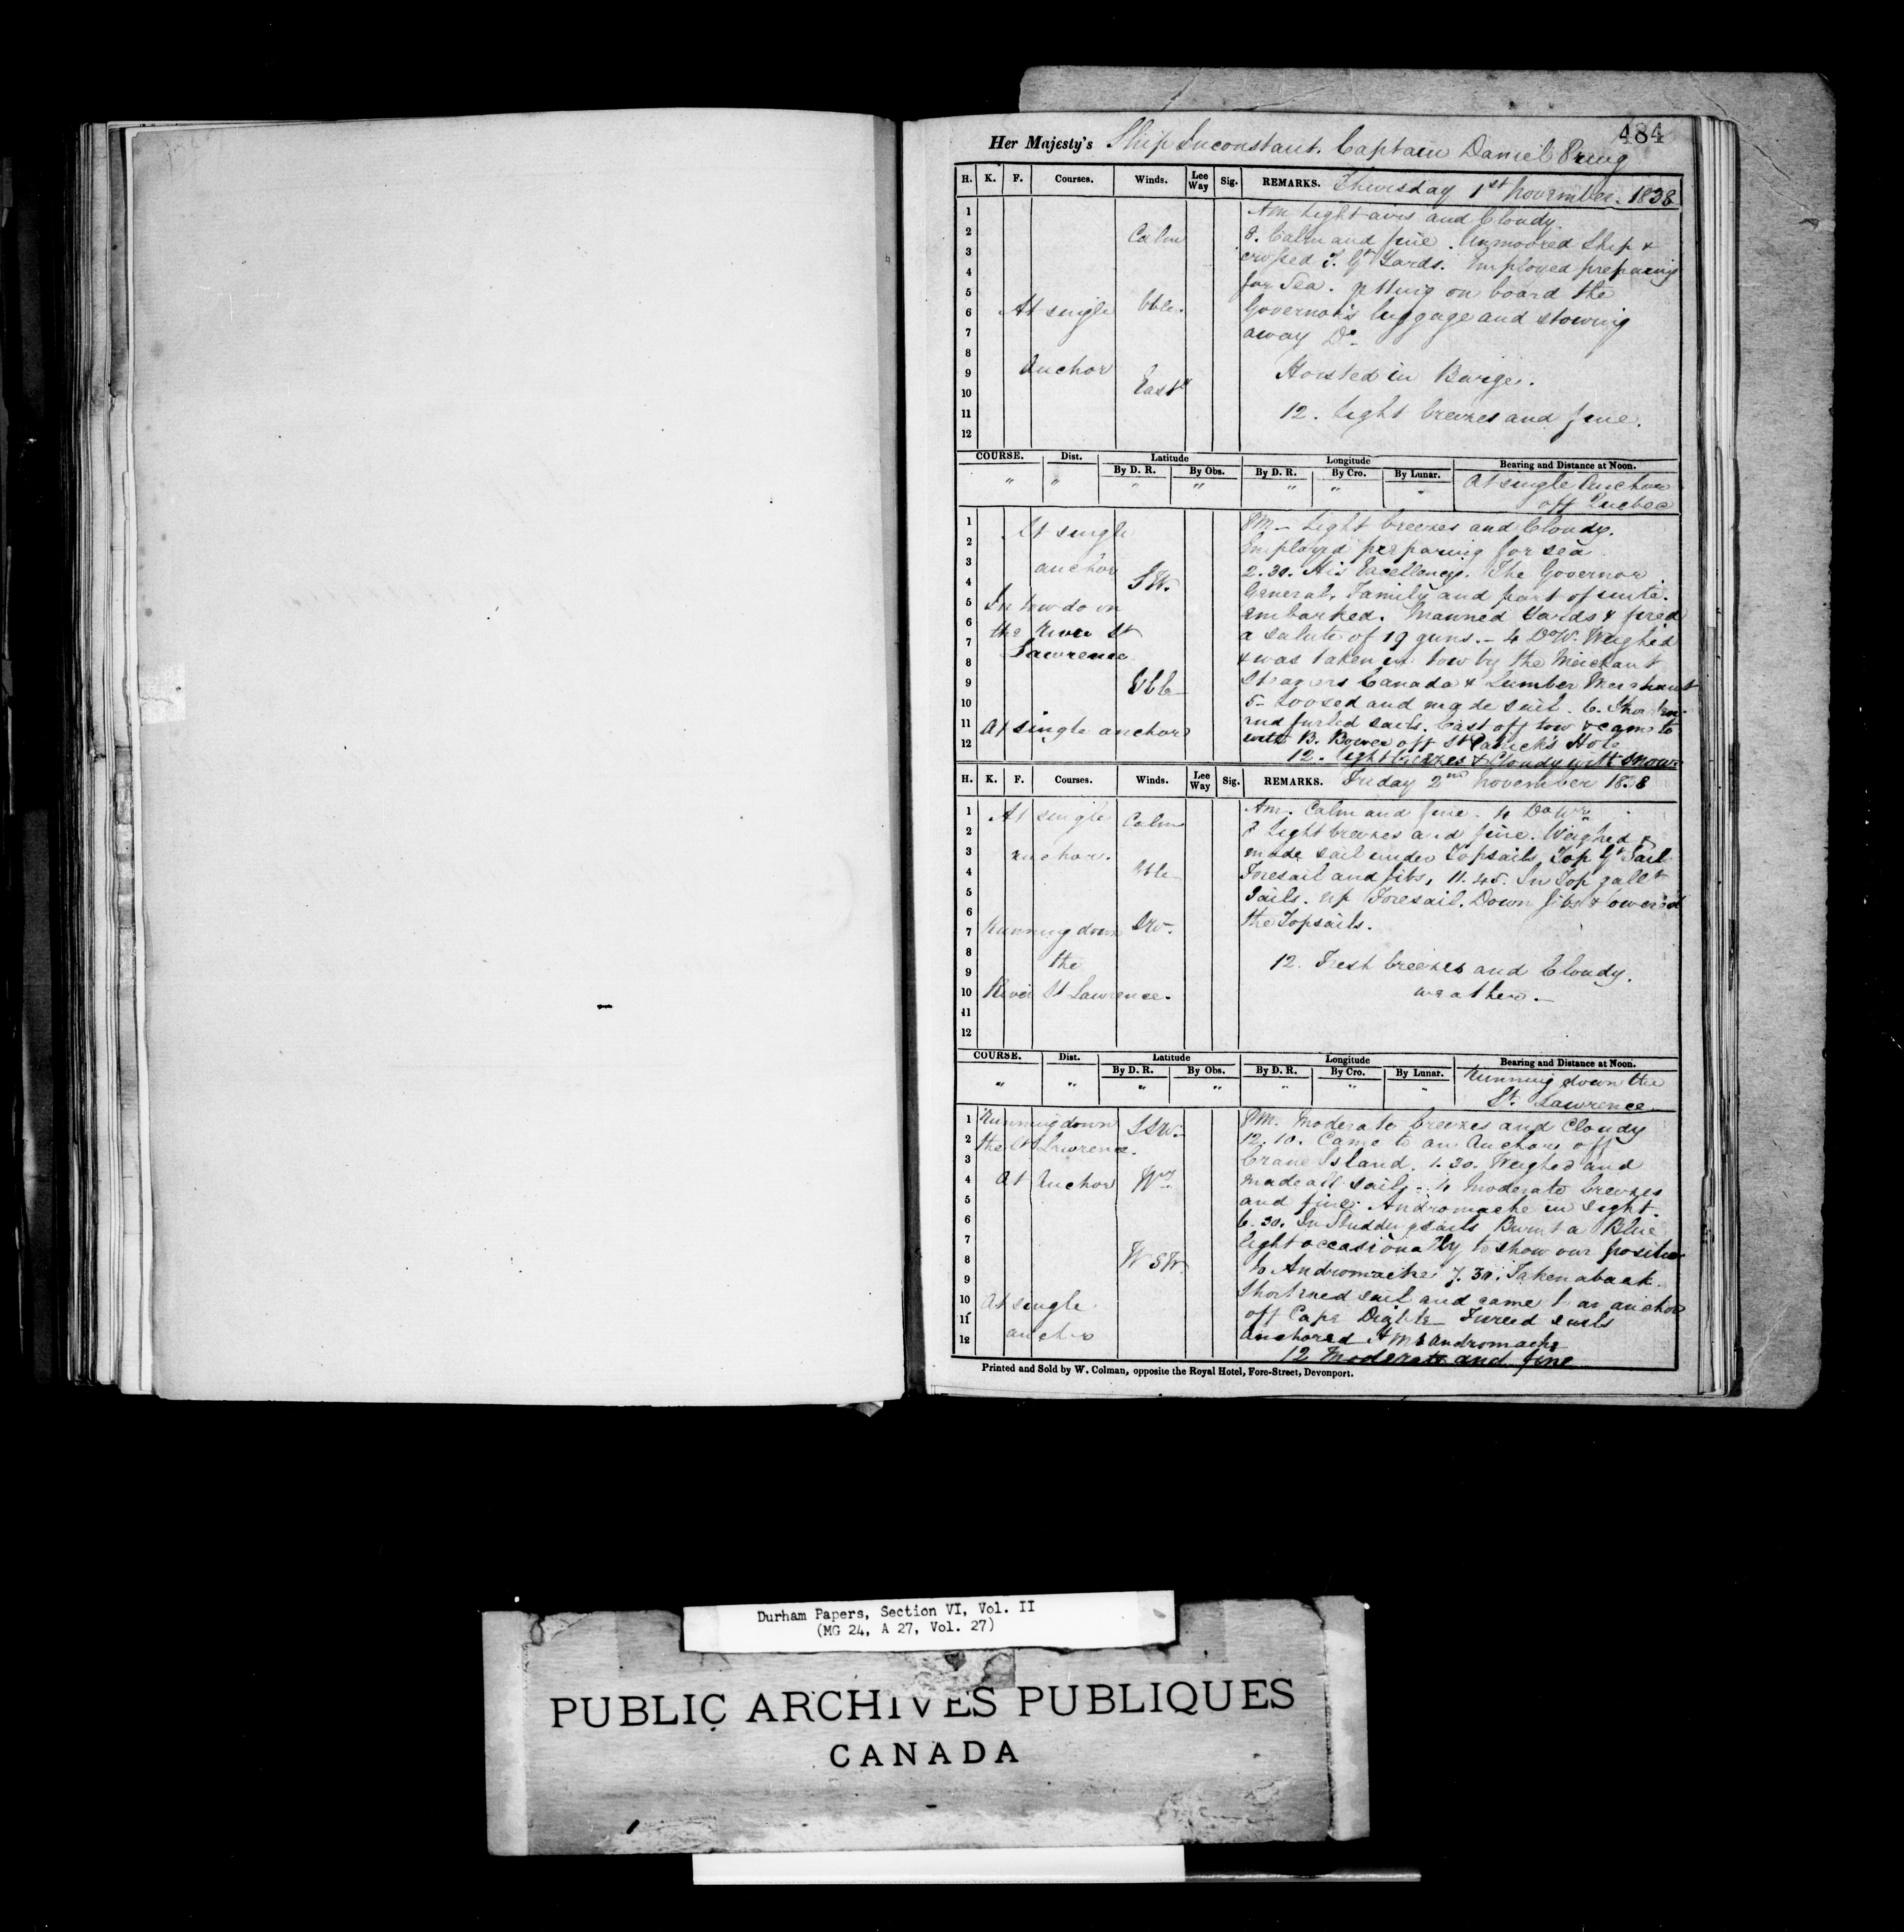 484
Her Majesty's Ship Inconstant. Captain Daniel Pring
H. K. F. Courses. Winds. Lee Way Sig. REMARKS. Thursday 1st November. 1838
1
2
3
4
5
6
7
8
9
10
11
12
Calm
At single Vble.
Anchor
Eastd
Am Light airs and Cloudy.
8. Calm and fine. Unmoored Ship &
crossed T. Gt Yards. Employed preparing
for Sea. getting on board the
Governor's luggage and stowing
away Do
Hoisted in Barge.
12. Light breezes and fine.
COURSE. Dist. Latitude Longitude Bearing and Distance at Noon.
By D. R. By Obs. By D. R. By Cro. By Lunar.
" " " " " " "
At single Anchor
off Quebec
1
2
3
4
5
6
7
8
9
10
11
12
At single
anchor
SW.
In tow do on
the River St
Lawrence
Vble
At single anchor
PM - Light breezes and Cloudy.
Employed preparing for sea
2.30. His Excellency. The Governor
General, Family and part of suite.
embarked. Manned Yards & fired
a salute of 19 guns. - 4 DoW. Weighed
& was taken in tow by the Merchant
Steamers Canada & Lumber Merchant
5 - Loosed and made sail. 6. Shorten
and furled sails. Cast off tow & came to
with B. Bower off St Patrick's Hole
12. light breezes & Cloudy with snow
H. K. F. Courses. Winds. Lee Way Sig. REMARKS. Friday 2nd November 1838
1
2
3
4
5
6
7
8
9
10
11
12
At single Calm
anchor.
Vble
Running down SW.
the
River St Lawrence.
Am. Calm and fine. 4 DoWr
8 Light breezes and fine. Weighed &
made sail under Topsails, Top Gt Sail
Foresail and Jibs, 11.45. In Top gallt
Sails. up Foresail. Down Jibs & lowered
the Topsails.
12. Fresh breezes and Cloudy.
weather. -
COURSE. Dist. Latitude Longitude Bearing and Distance at Noon.
By D. R. By Obs. By D. R. By Cro. By Lunar.
" " " " " " "
Running down the
St. Lawrence
1
2
3
4
5
6
7
8
9
10
11
12
Running down SSW.
the St Lawrence.
At Anchor
WSW.
At single
anchor
PM. Moderate breezes and Cloudy
12.10. Came to an Anchor off
Crane Island. 1.30. Weighed and
made all sail, - 4 Moderate breezes
and fine. Andromache in sight.
6.30. In Studdingsails Burnt a Blue
light occasionally to show our position
to Andromache. 7.30. Taken aback.
Shortened sail and came to an anchor
off Cape Furled sails
anchored HMS Andromache
12 Moderate and fine
Printed and Sold by W. Colman, opposite the Royal Hotel, Fore-Street, Devonport.
Durham Papers, Section VI, Vol. II
(MG 24, A 27, Vol. 27)
PUBLIC ARCHIVES PUBLIQUES
CANADA